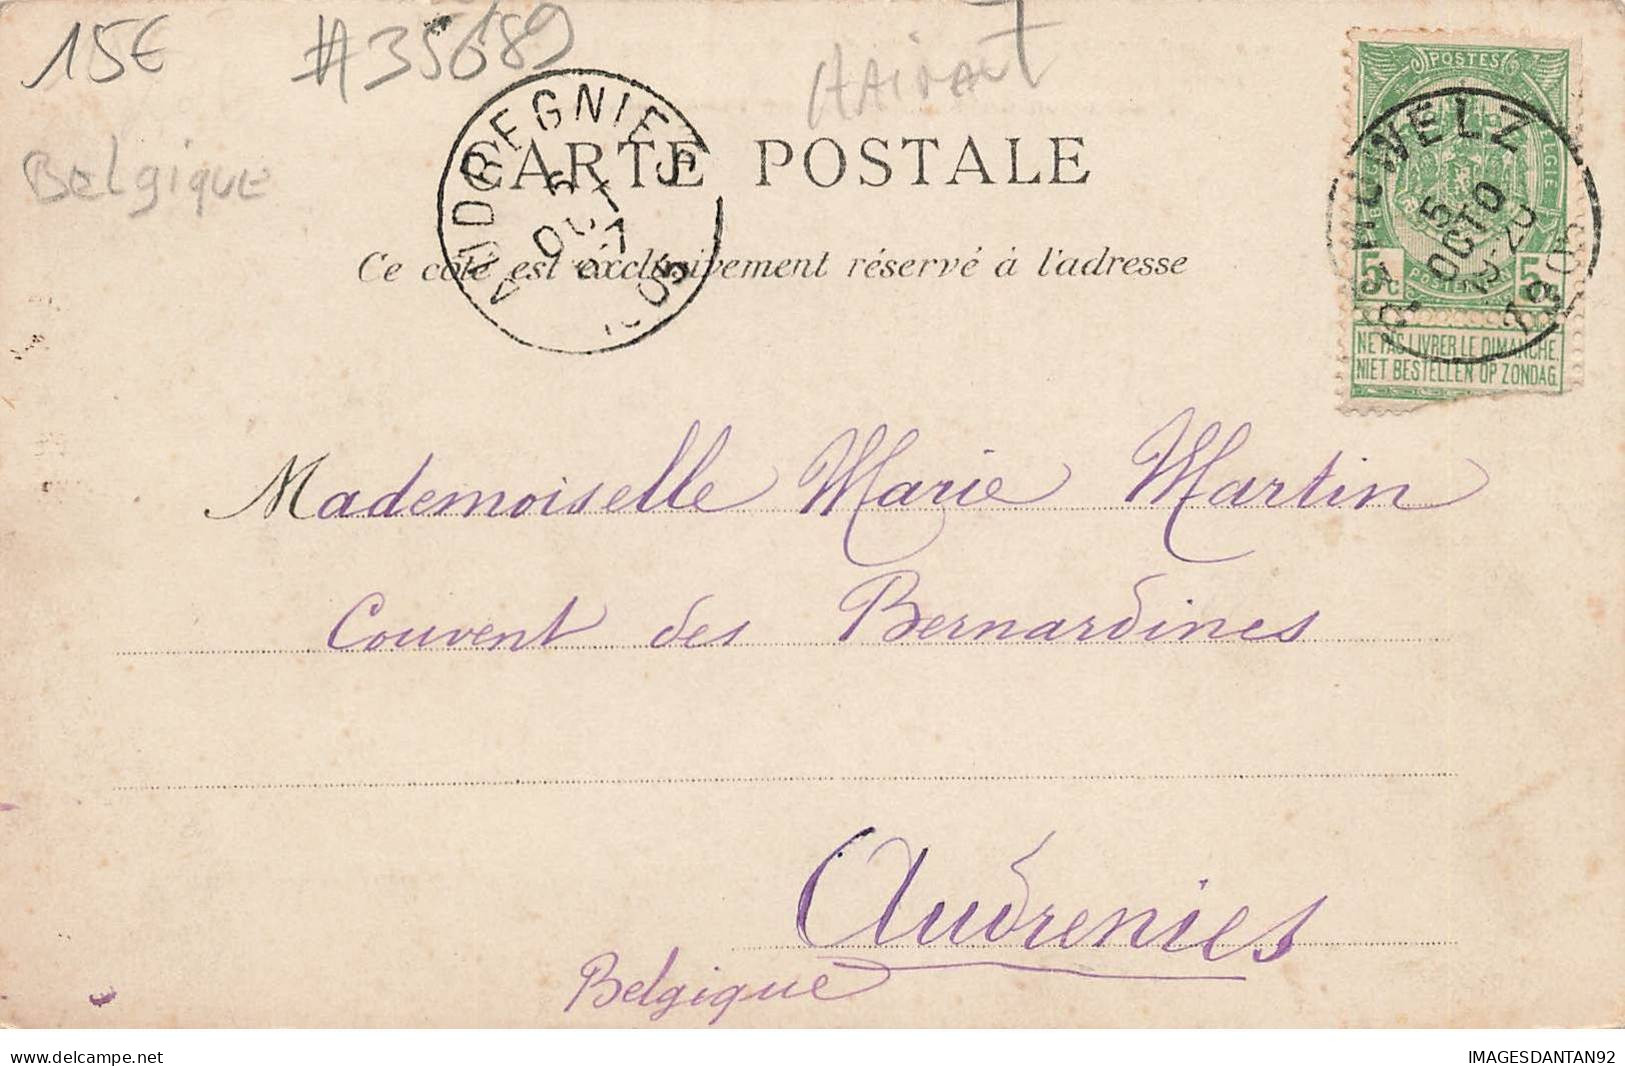 15€ #35689 HAINAUT
Belgique
AUDREGNIES
6
OCT
7
1905
CARTE POSTALE
Ce côté est exclusivement réservé à l'adresse
POSTES
5c 5c
POSTERIJEN
NE PAS LIVRER LE DIMANCHE
NIET BESTELLEN OP ZONDAG
5
OCTO
1905
Mademoiselle Marie Martin
Couvent des Bernardines
Audrenies
Belgique
delcampe.net
IMAGESDANTAN92